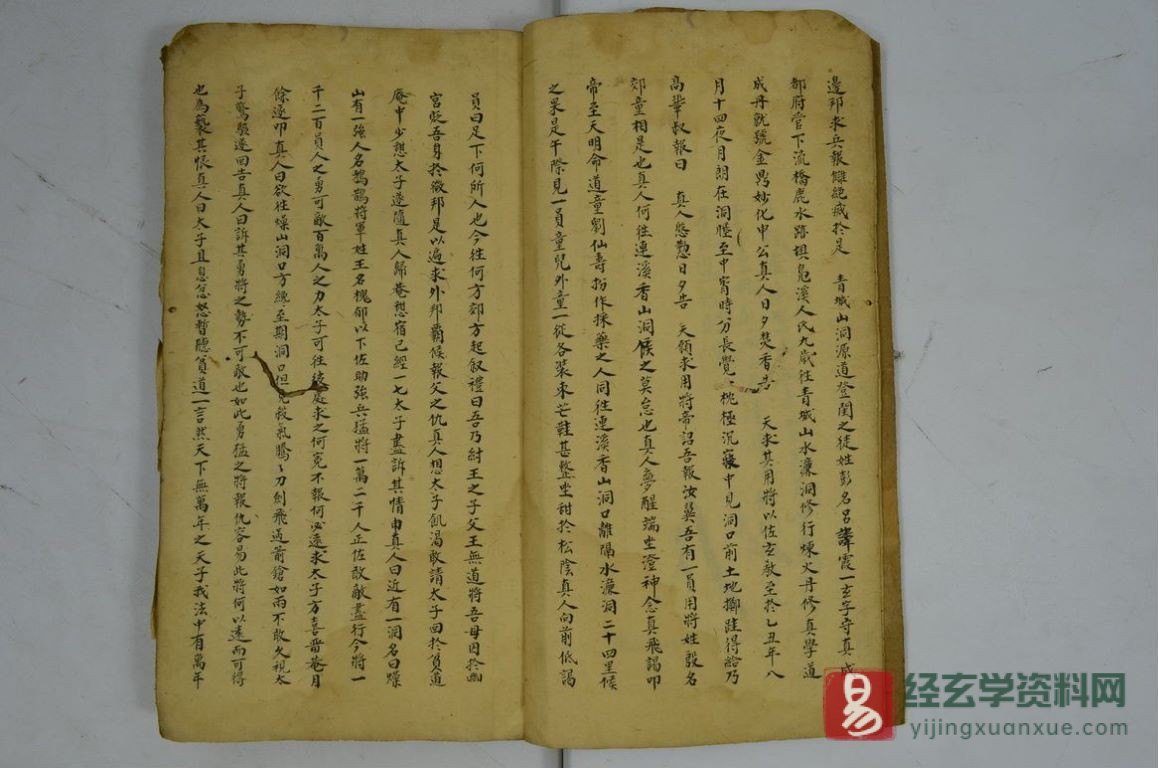 邊邦求兵報雠絕滅於是 青城山洞源道登閏之徒姓彭名呂諱霞一玄字守真成
都府管下流橋鹿水路坦龜溪人氏九歲往青城山水濂洞修行煉火丹修真學道
成丹就號金鼎妙化申公真人日夕焚香告 天求其用將以佐玄教至於乙丑年八
月十四夜月朗在洞睡至中宵時分長覺〻枕極沉寐中見洞口前土地擲跬得給乃
高聲叔報曰 真人慇懃日夕告 天領求用將帝詔吾報汝冀吾有一員用將姓殷名
郊童相是也真人何往連溪香山洞候之莫怠也真人夢醒端坐澄神念真飛謁叩
帝至天明命道童劉仙壽扮作採藥之人同往連溪香山洞口離隔水濂洞二十四里候
之果是午際見一員童兒外童一從各裝束芒鞋甚整坐甜於松陰真人向前低謁
員曰足下何所人也今往何方郊方起叙禮曰吾乃紂王之子父王無道將吾母因於幽
宮貶吾身於微邦是以遍求外邦覇候報父之仇真人想太子飢渴敢請太子回於貧道
庵中少想太子遂隨真人歸菴想宿已經一七太子盡訴其情由真人曰近有一洞名曰燥
山有一強人名鵝鸕將軍姓王名槐郁以下佐助強兵猛將一萬二千人正佐敌敵盡行今將一
千二百員人之勇可敵百萬人之力太子可往 處求之何寃不報何必遠求太子方喜畱菴月
餘遂叩真人曰欲往燥山洞口方纔至期洞口但見殺氣騰〻刀劍飛過前鎗如雨不敢久視太
子驚駭遂回告真人曰訴其勇將之勢不可敢也如此勇猛之將報仇容易此將何以遠而可得
也為藝其悵真人曰太子且息忿怒暫聽貧道一言然天下無萬年之天子我法中有萬年
易
经玄学资料网
yijingxuanxue.com